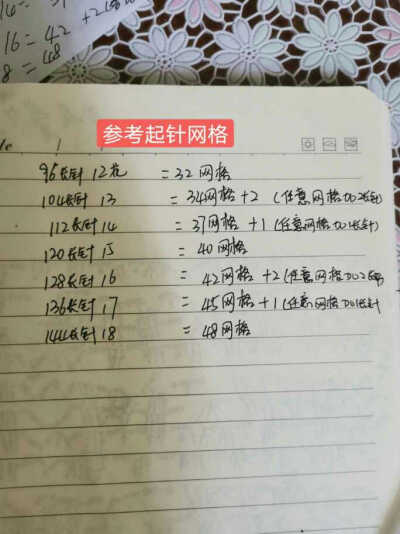 14=
16=42 +2
8=48
参考起针网格
96长针 12花 =32网格
104长针 13 =34网格+2 (任意网格加2长针)
112长针 14 =37网格+1 (任意网格加1长针)
120长针 15 =40网格
128长针 16 =42网格+2 (任意网格加2长针
136长针 17 =45网格+1 (任意网格加1长针
144长针 18 =48网格